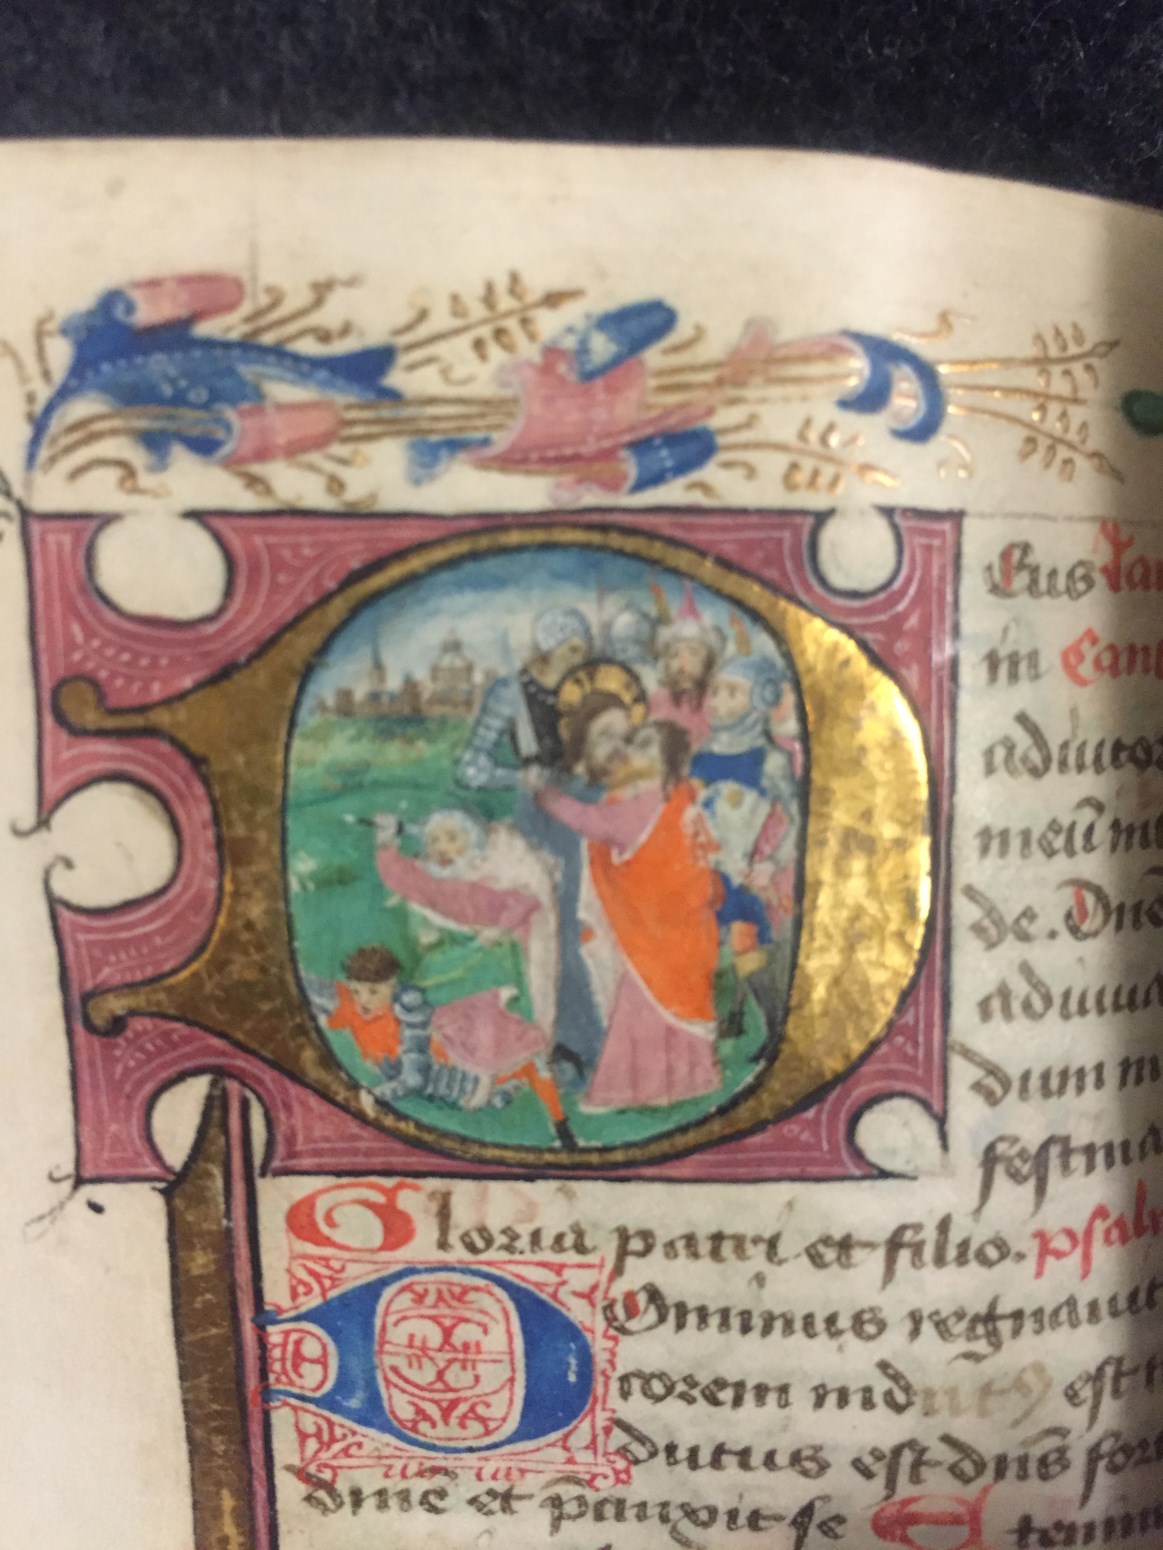 Deus
in
adiutor
meū in
de. Dn̄e
adiuua
dum m
festina
Gloria patri et filio. psal
Dominus regnauit
corem indutꝰ est
dutus est dn̄s for
dinē et p̄cinxit se